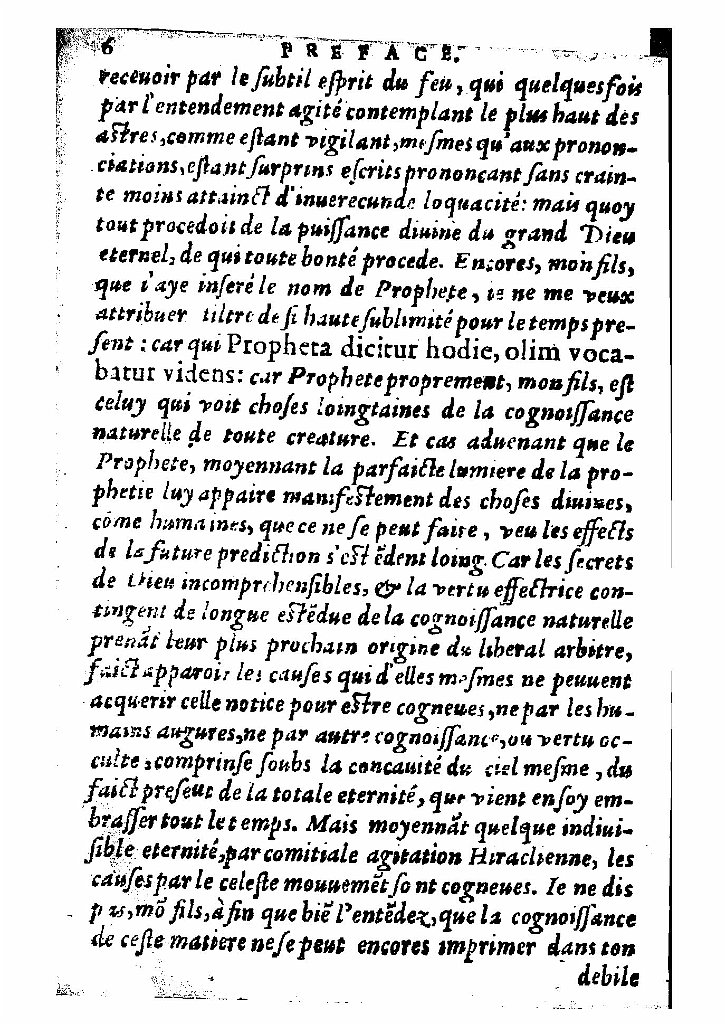 6 PREFACE.
receuoir par le ſubtil eſprit du feu, qui quelquesfois
par l'entendement agité contemplant le plus haut des
aſtres, comme eſtant vigilant, meſmes qu'aux pronon-
ciations, eſtant ſurprins eſcrits prononcant ſans crain-
te moins attainct d'inuerecunde loquacité: mais quoy
tout procedoit de la puiſſance diuine du grand Dieu
eternel, de qui toute bonté procede. Encores, mon fils,
que i'aye inſeré le nom de Prophete, ie ne me veux
attribuer tiltre de ſi haute ſublimité pour le temps pre-
ſent: car qui Propheta dicitur hodie, olim voca-
batur videns: car Prophete proprement, mon fils, eſt
celuy qui voit choſes loingtaines de la cognoiſſance
naturelle de toute creature. Et cas aduenant que le
Prophete, moyennant la parfaicte lumiere de la pro-
phetie luy appaire manifeſtement des choſes diuines,
cōme humaines, que ce ne ſe peut faire, veu les effects
de la future prediction s'eſtēdent loing. Car les ſecrets
de Dieu incomprehenſibles, & la vertu effectrice con-
tingent de longue eſtēdue de la cognoiſſance naturelle
prenāt leur plus prochain origine du liberal arbitre,
faict apparoir les cauſes qui d'elles meſmes ne peuuent
acquerir celle notice pour eſtre cogneues, ne par les hu-
mains augures, ne par autre cognoiſſance, ou vertu oc-
culte, comprinſe ſoubs la concauité du ciel meſme, du
faict preſeut de la totale eternité, que vient en ſoy em-
braſſer tout le temps. Mais moyennāt quelque indiui-
ſible eternité, par comitiale agitation Hiraclienne, les
cauſes par le celeſte mouuemēt ſont cogneues. Ie ne dis
pas, mō fils, àfin que biē l'entēdez, que la cognoiſſance
de ceſte matiere ne ſe peut encores imprimer dans ton
debile